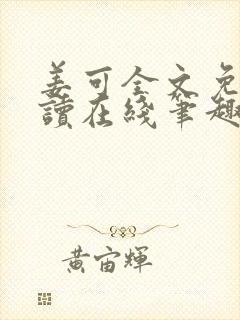 姜可全文免
讀在綫筆趣
黄宙輝